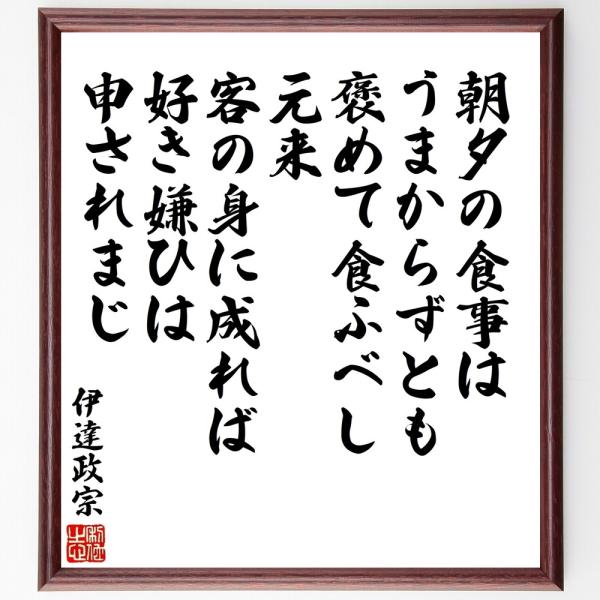 朝夕の食事は
うまからずとも
褒めて食ふべし
元来
客の身に成れば
好き嫌ひは
申されまじ
伊達政宗